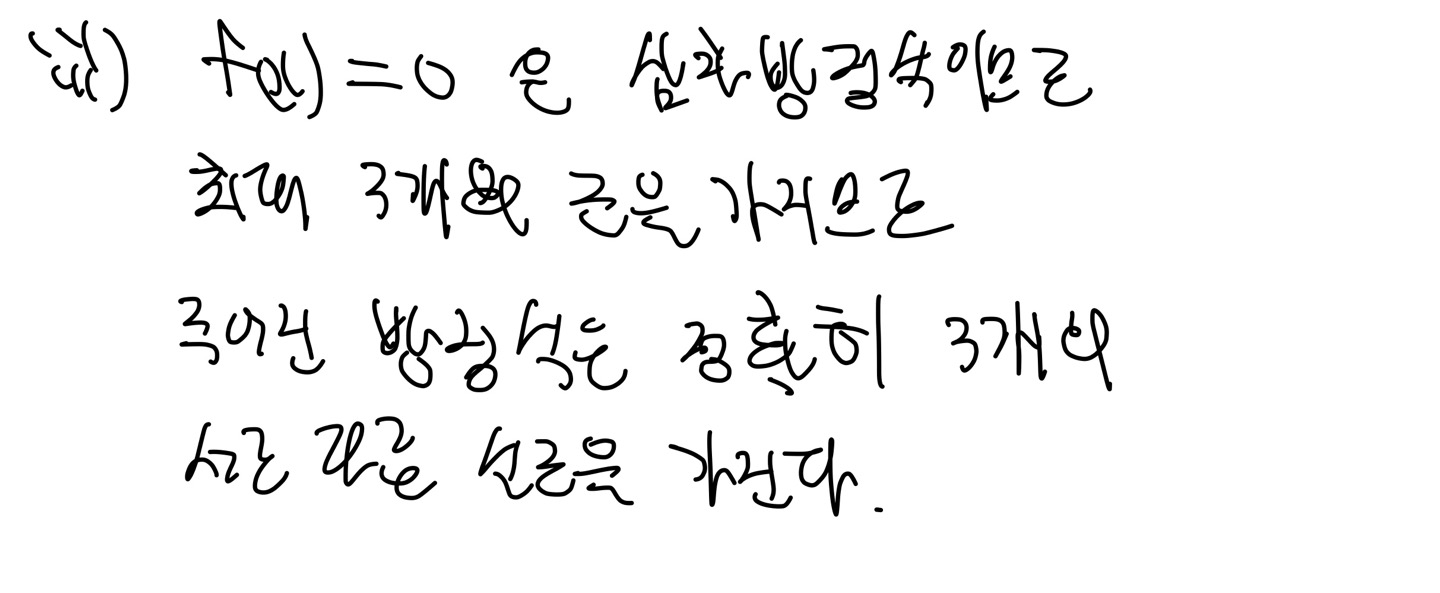 iii) f(x)=0 은 삼차방정식이므로
최대 3개의 근을 가지므로
주어진 방정식은 정확히 3개의
서로 다른 실근을 가진다.